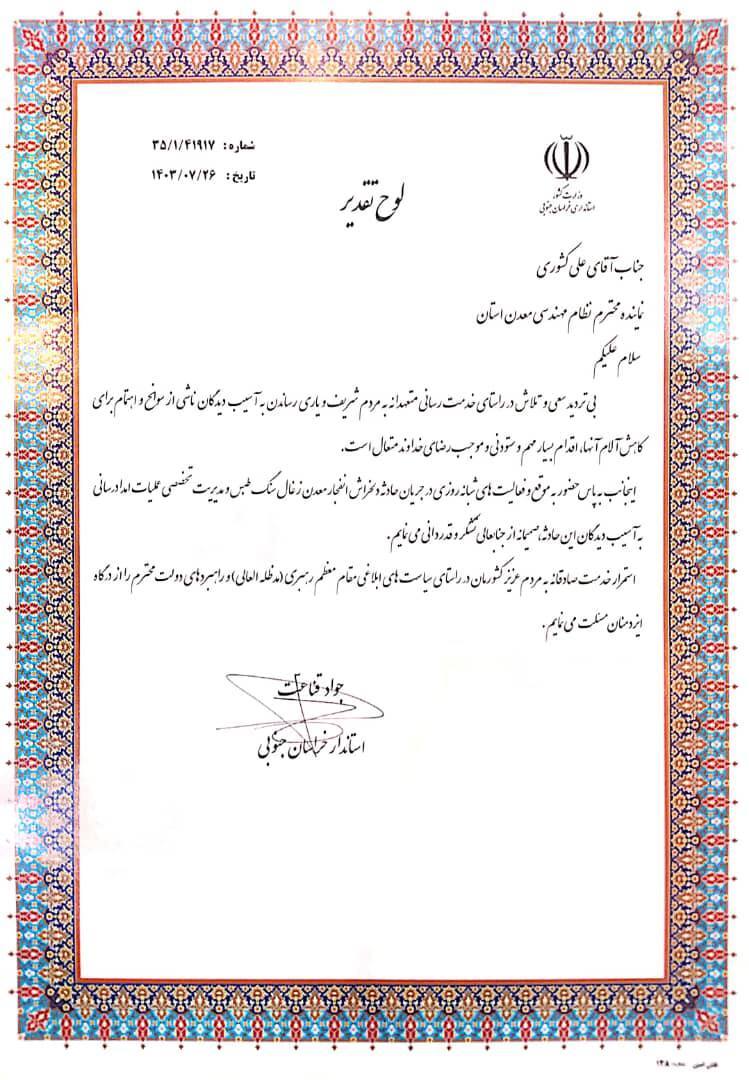 شماره: ۳۵/۱/۴۱۹۱۷
تاریخ: ۱۴۰۳/۰۷/۲۶
وزارت کشور
استانداری خراسان جنوبی
لوح تقدیر
جناب آقای علی کشوری
نماینده محترم نظام مهندسی معدن استان
سلام علیکم
بی تردید سعی و تلاش در راستای خدمت رسانی متعهدانه به مردم شریف و یاری رساندن به آسیب دیدگان ناشی از سوانح و اهتمام برای
کاهش آلام آنها، اقدام بسیار مهم و ستودنی و موجب رضای خداوند متعال است.
اینجانب به پاس حضور به موقع و فعالیت های شبانه روزی در جریان حادثه دلخراش انفجار معدن زغال سنگ طبس و مدیریت تخصصی عملیات امداد رسانی
به آسیب دیدگان این حادثه، صمیمانه از جنابعالی تشکر و قدردانی می نمایم.
استمرار خدمت صادقانه به مردم عزیز کشورمان در راستای سیاست های ابلاغی مقام معظم رهبری (مدظله العالی) و راهبردهای دولت محترم را از درگاه
ایزد منان مسئلت می نمایم.
جواد قناعت
استاندار خراسان جنوبی
۱۳۸